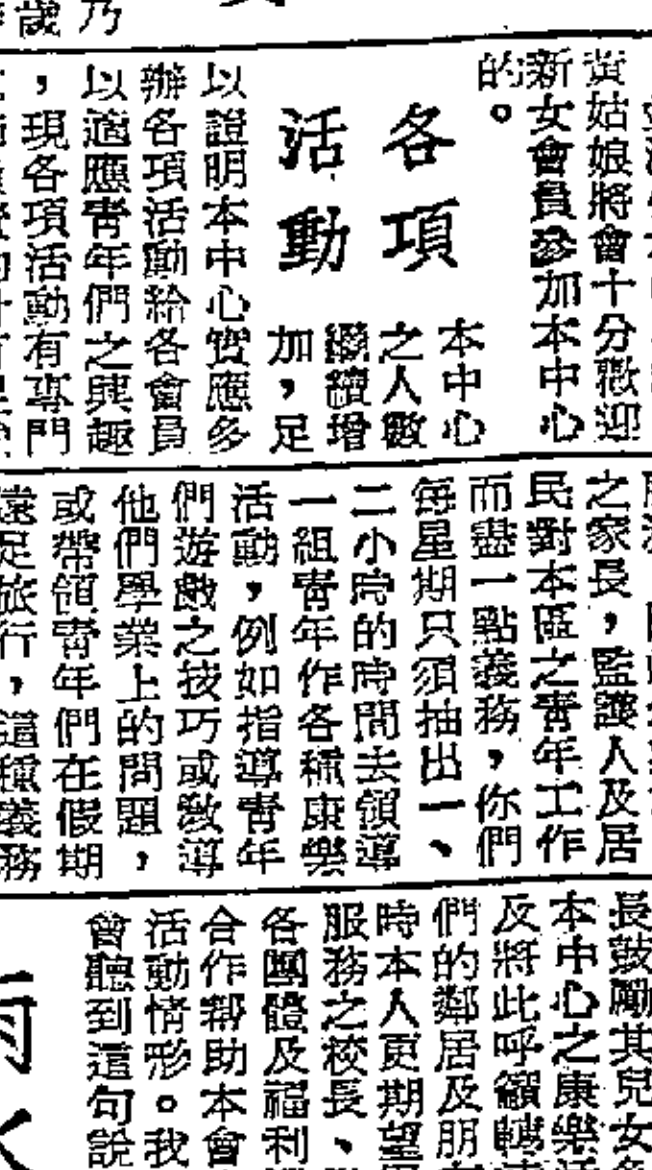 歲乃
黃姑娘將會十分歡迎
新女會員參加本中心
的。
各項
活動
本中心
之人數
繼續增
加，足
以證明本中心實應多
辦各項活動給各會員
以適應青年們之興趣
，現各項活動有專門
之家長，監護人及居
民對本區之青年工作
而盡一點義務，你們
每星期只須抽出一、
二小時的時間去領導
一組青年作各種康樂
活動，例如指導青年
們遊戲之技巧或教導
他們學業上的問題，
或帶領青年們在假期
遠足旅行，這種義務
長鼓勵其兒女
本中心之康樂
及將此呼籲轉
們的鄰居及朋
時本人更期望
服務之校長、
各團體及福利
合作幫助本會
活動情形。我
會聽到這句說
雨水